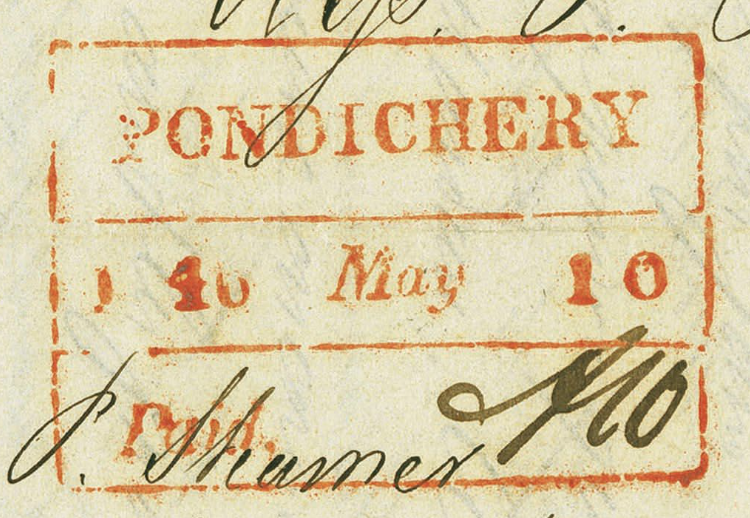 PONDICHERY
1 46 May 10
Paid.
P. Steamer